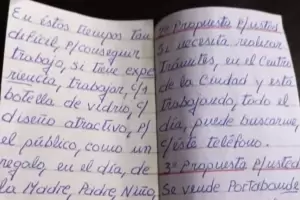 En éstos tiempos tan
dificil, p/conseguir
trabajo, si tiene expe
riencia, trabajar, c/s
botella de vidrio, c/
diseño atractivo, p/
el público, como un
regalo, en el día, de
la Madre, Padre, Niño,
2º Propuesta P/usted
Si necesita realizar
trámites, en el Centro
de la Ciudad y está
trabajando, todo el
día, puede buscarme,
c/éste teléfono.
3º Propuesta P/usted
Se vende Portabande